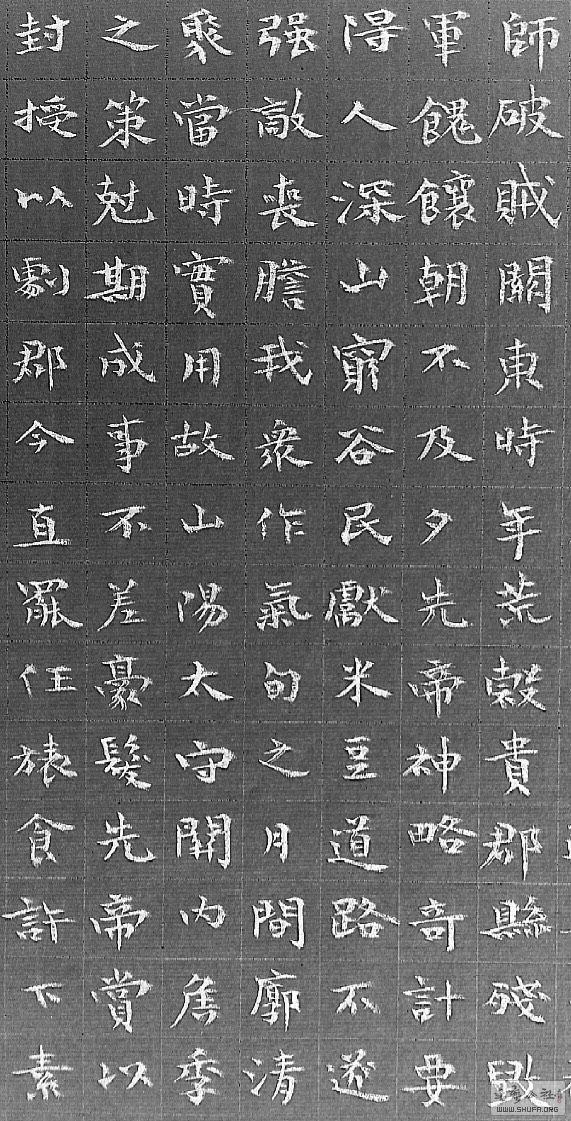 師破賊關東時年荒穀貴郡縣殘毀
軍餽饟朝不及夕先帝神略奇計委
得人深山窮谷民獻米豆道路不遂
强敵喪膽我衆作氣旬之月間廓清
聚當時實用故山陽太守關內侯季
之策尅期成事不差豪髮先帝賞以
封授以劇郡今直罷任旅食許下素
WWW.SHUFA.ORG